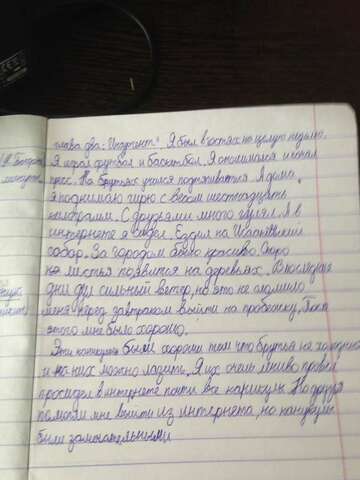 глава два: Инцидент. Я был в гостях на целую неделю.
Я играл футбол и баскетбол. Я отжимался и качал
пресс. На брусьях учился подтягиваться. А дома
я поднимаю гирю с весом шестнадцать
килограмм. С друзьями много гулял. А в
интернете я сидел. Ездил на Исаакиевский
собор. За городом было красиво. Скоро
на листья появится на деревьях. В последние
дни дул сильный ветер, но это не мешало
меня перед завтраком выйти на пробежку. После
этого мне было хорошо.
Эти каникулы были хороши тем что брусья не холодные
и на них можно лазить. Я их очень лениво провёл
просидел в интернете почти все каникулы. Но друзья
помогли мне выйти из интернета, но каникулы
были замечательными